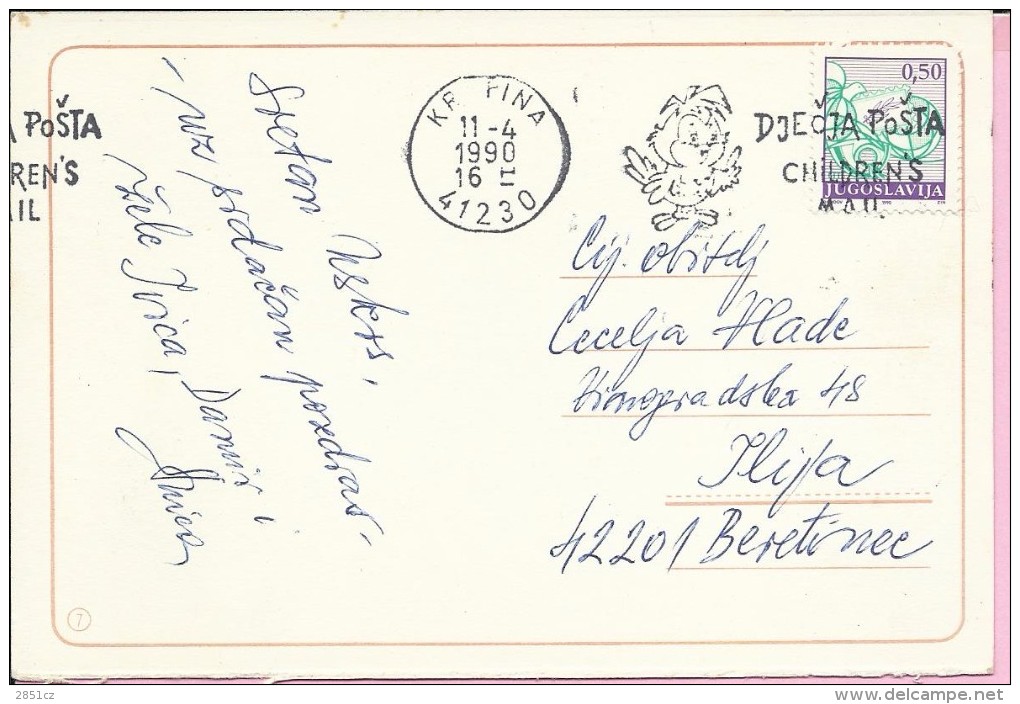 KR. PINA
11-4
1990
16 II
41230
DJEČJA POŠTA
CHILDREN'S
MAIL
A POŠTA
REN'S
AIL
0,50
JUGOSLAVIJA
Sretan Uskrs,
uz srdačan pozdrav
žele Ivica, Damir i
Anica
Cij. obitelj
Cecelja Vlade
Vinogradska 48
Ilija
42201 Beretinec
7
2851cz
www.delcampe.net